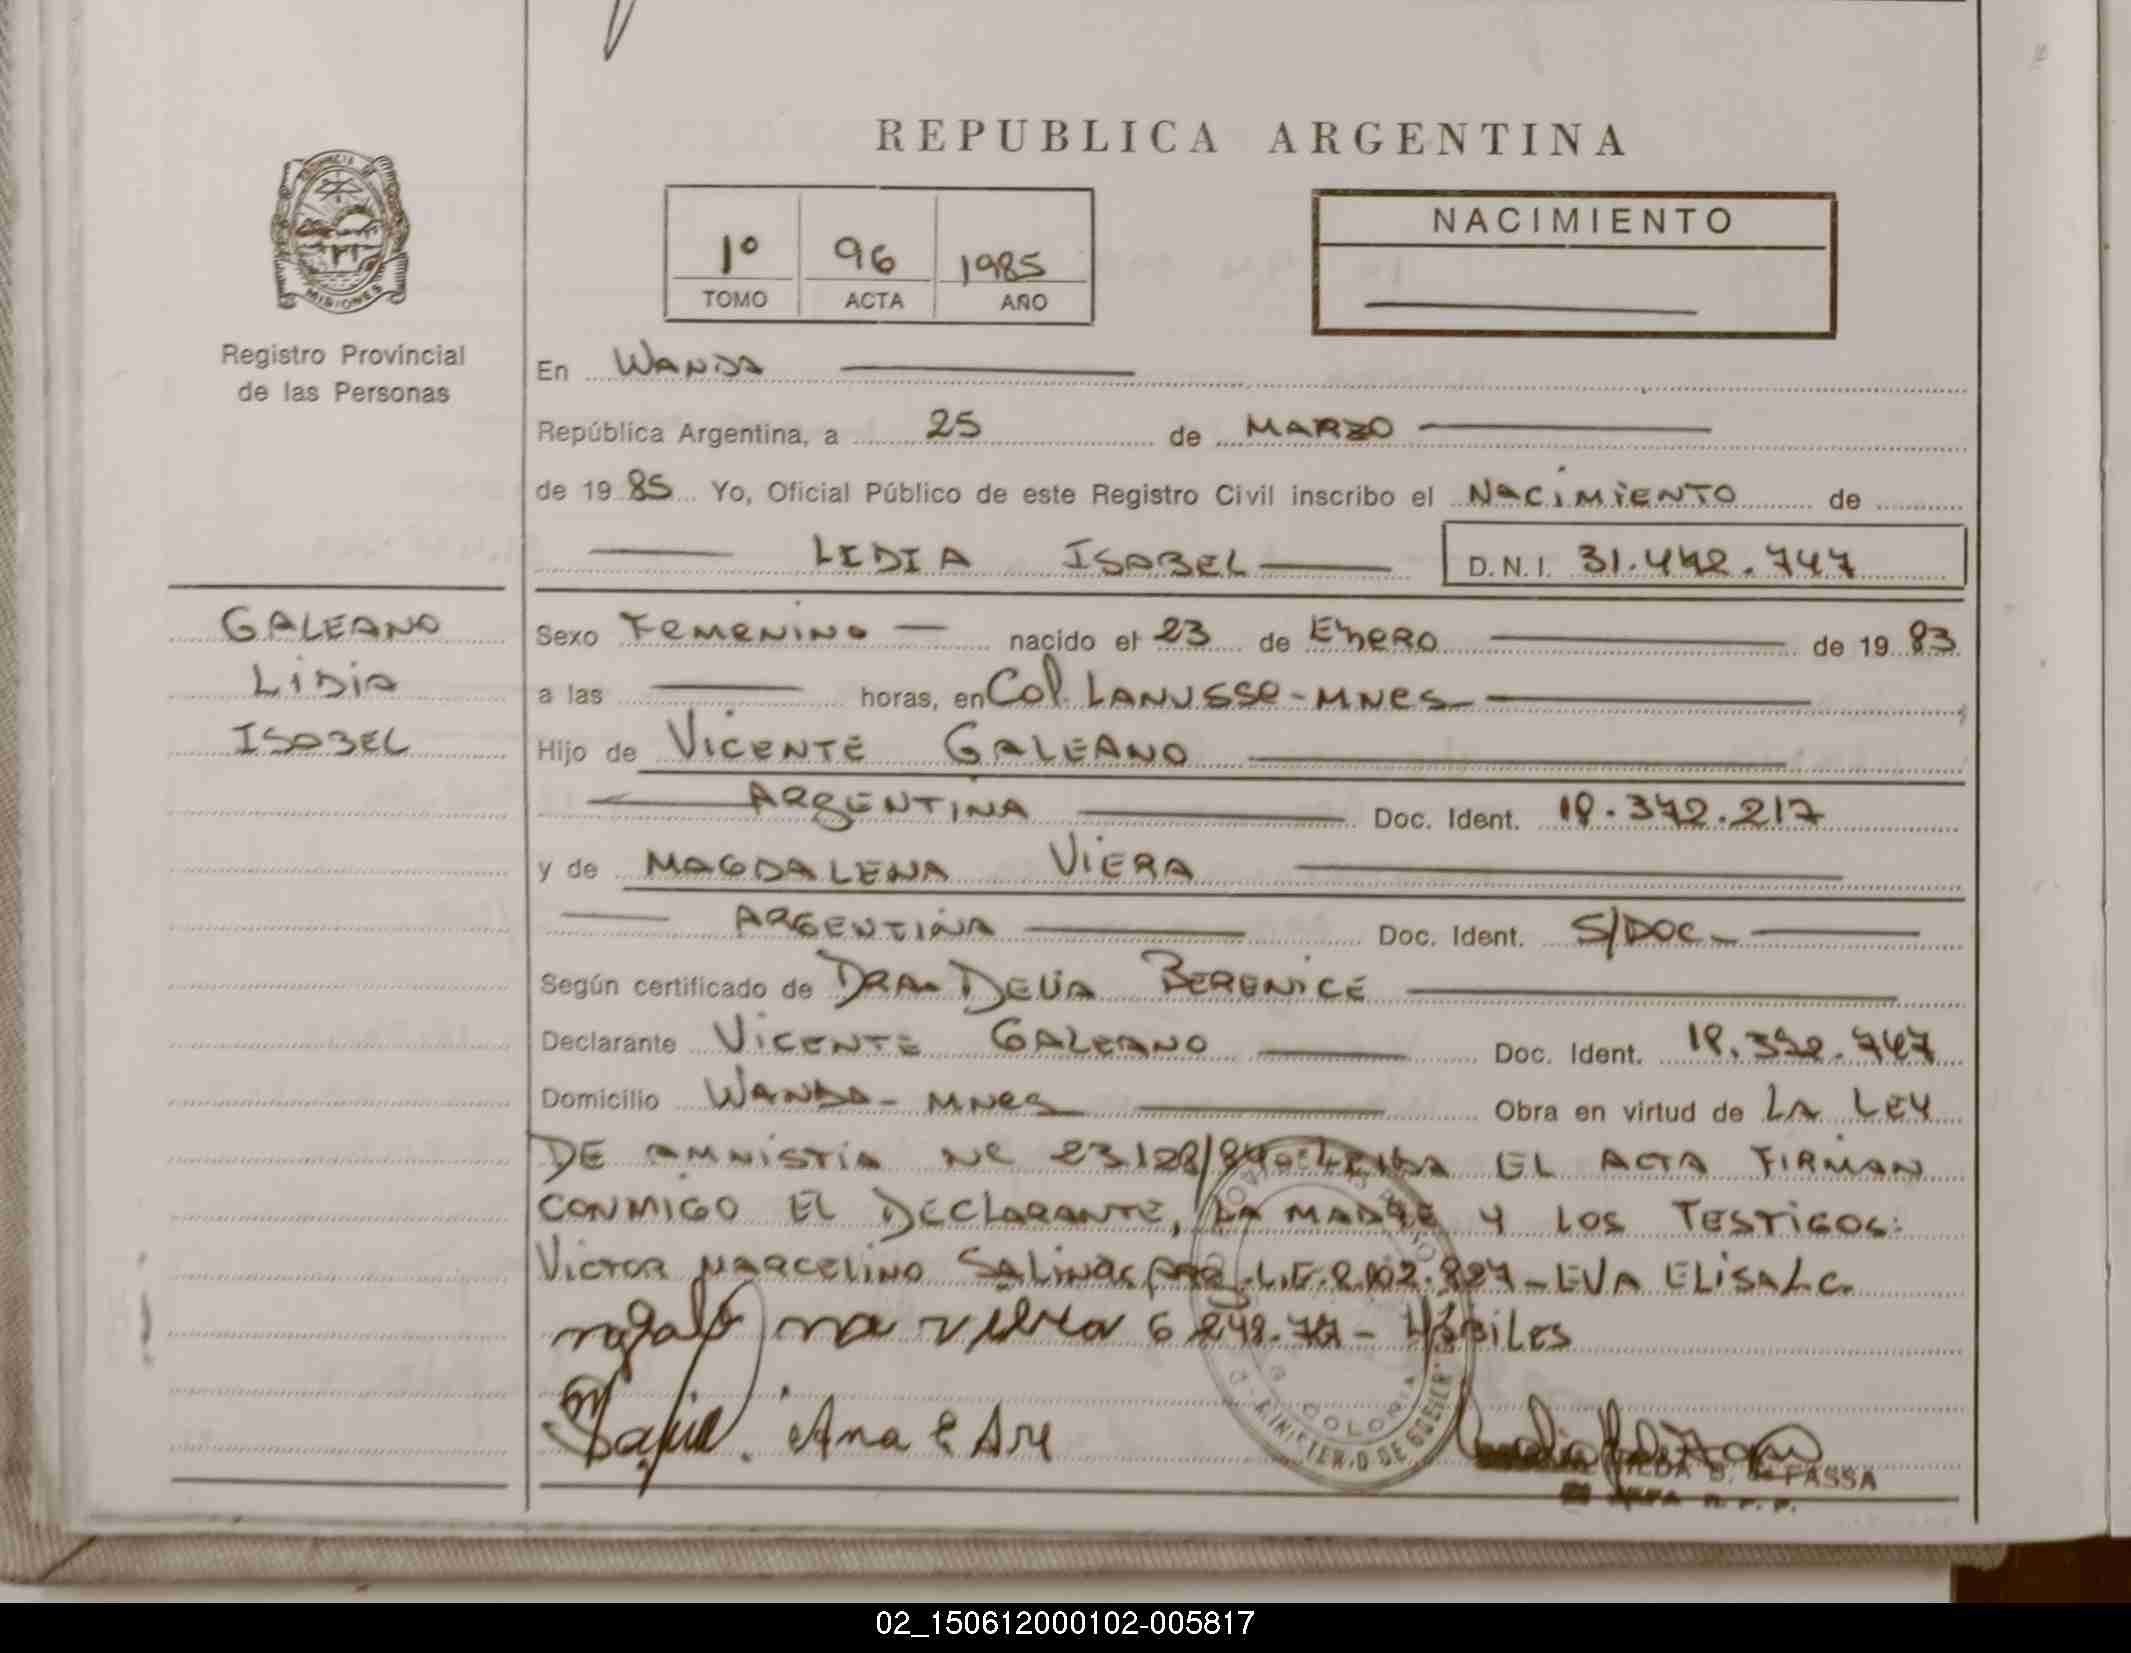 REPUBLICA ARGENTINA
PROVINCIA DE
MISIONES
Registro Provincial
de las Personas
1º 96 1985
TOMO ACTA AÑO
NACIMIENTO
En WANDA
República Argentina, a 25 de MARZO
de 19 85 Yo, Oficial Público de este Registro Civil inscribo el NACIMIENTO de
LIDIA ISABEL D.N.I. 31.442.747
GALEANO
LIDIA
ISABEL
Sexo FEMENINO nacido el 23 de ENERO de 19 83
a las horas, en Col. LANUSSE - MNES
Hijo de VICENTE GALEANO
ARGENTINA Doc. Ident. 18.342.217
y de MAGDALENA VIERA
ARGENTINA Doc. Ident. S/DOC
Según certificado de DRA. DELIA BERENICE
Declarante VICENTE GALEANO Doc. Ident.
Domicilio WANDA - MNES Obra en virtud de LA LEY
DE AMNISTIA Nº 23128/84 LEIDA EL ACTA FIRMAN
CONMIGO EL DECLARANTE, LA MADRE Y LOS TESTIGOS:
VICTOR MARCELINO SALINAS EVA ELISA
HÁBILES
MINISTERIO DE GOBIER
COLONIA
FASSA
02_150612000102-005817